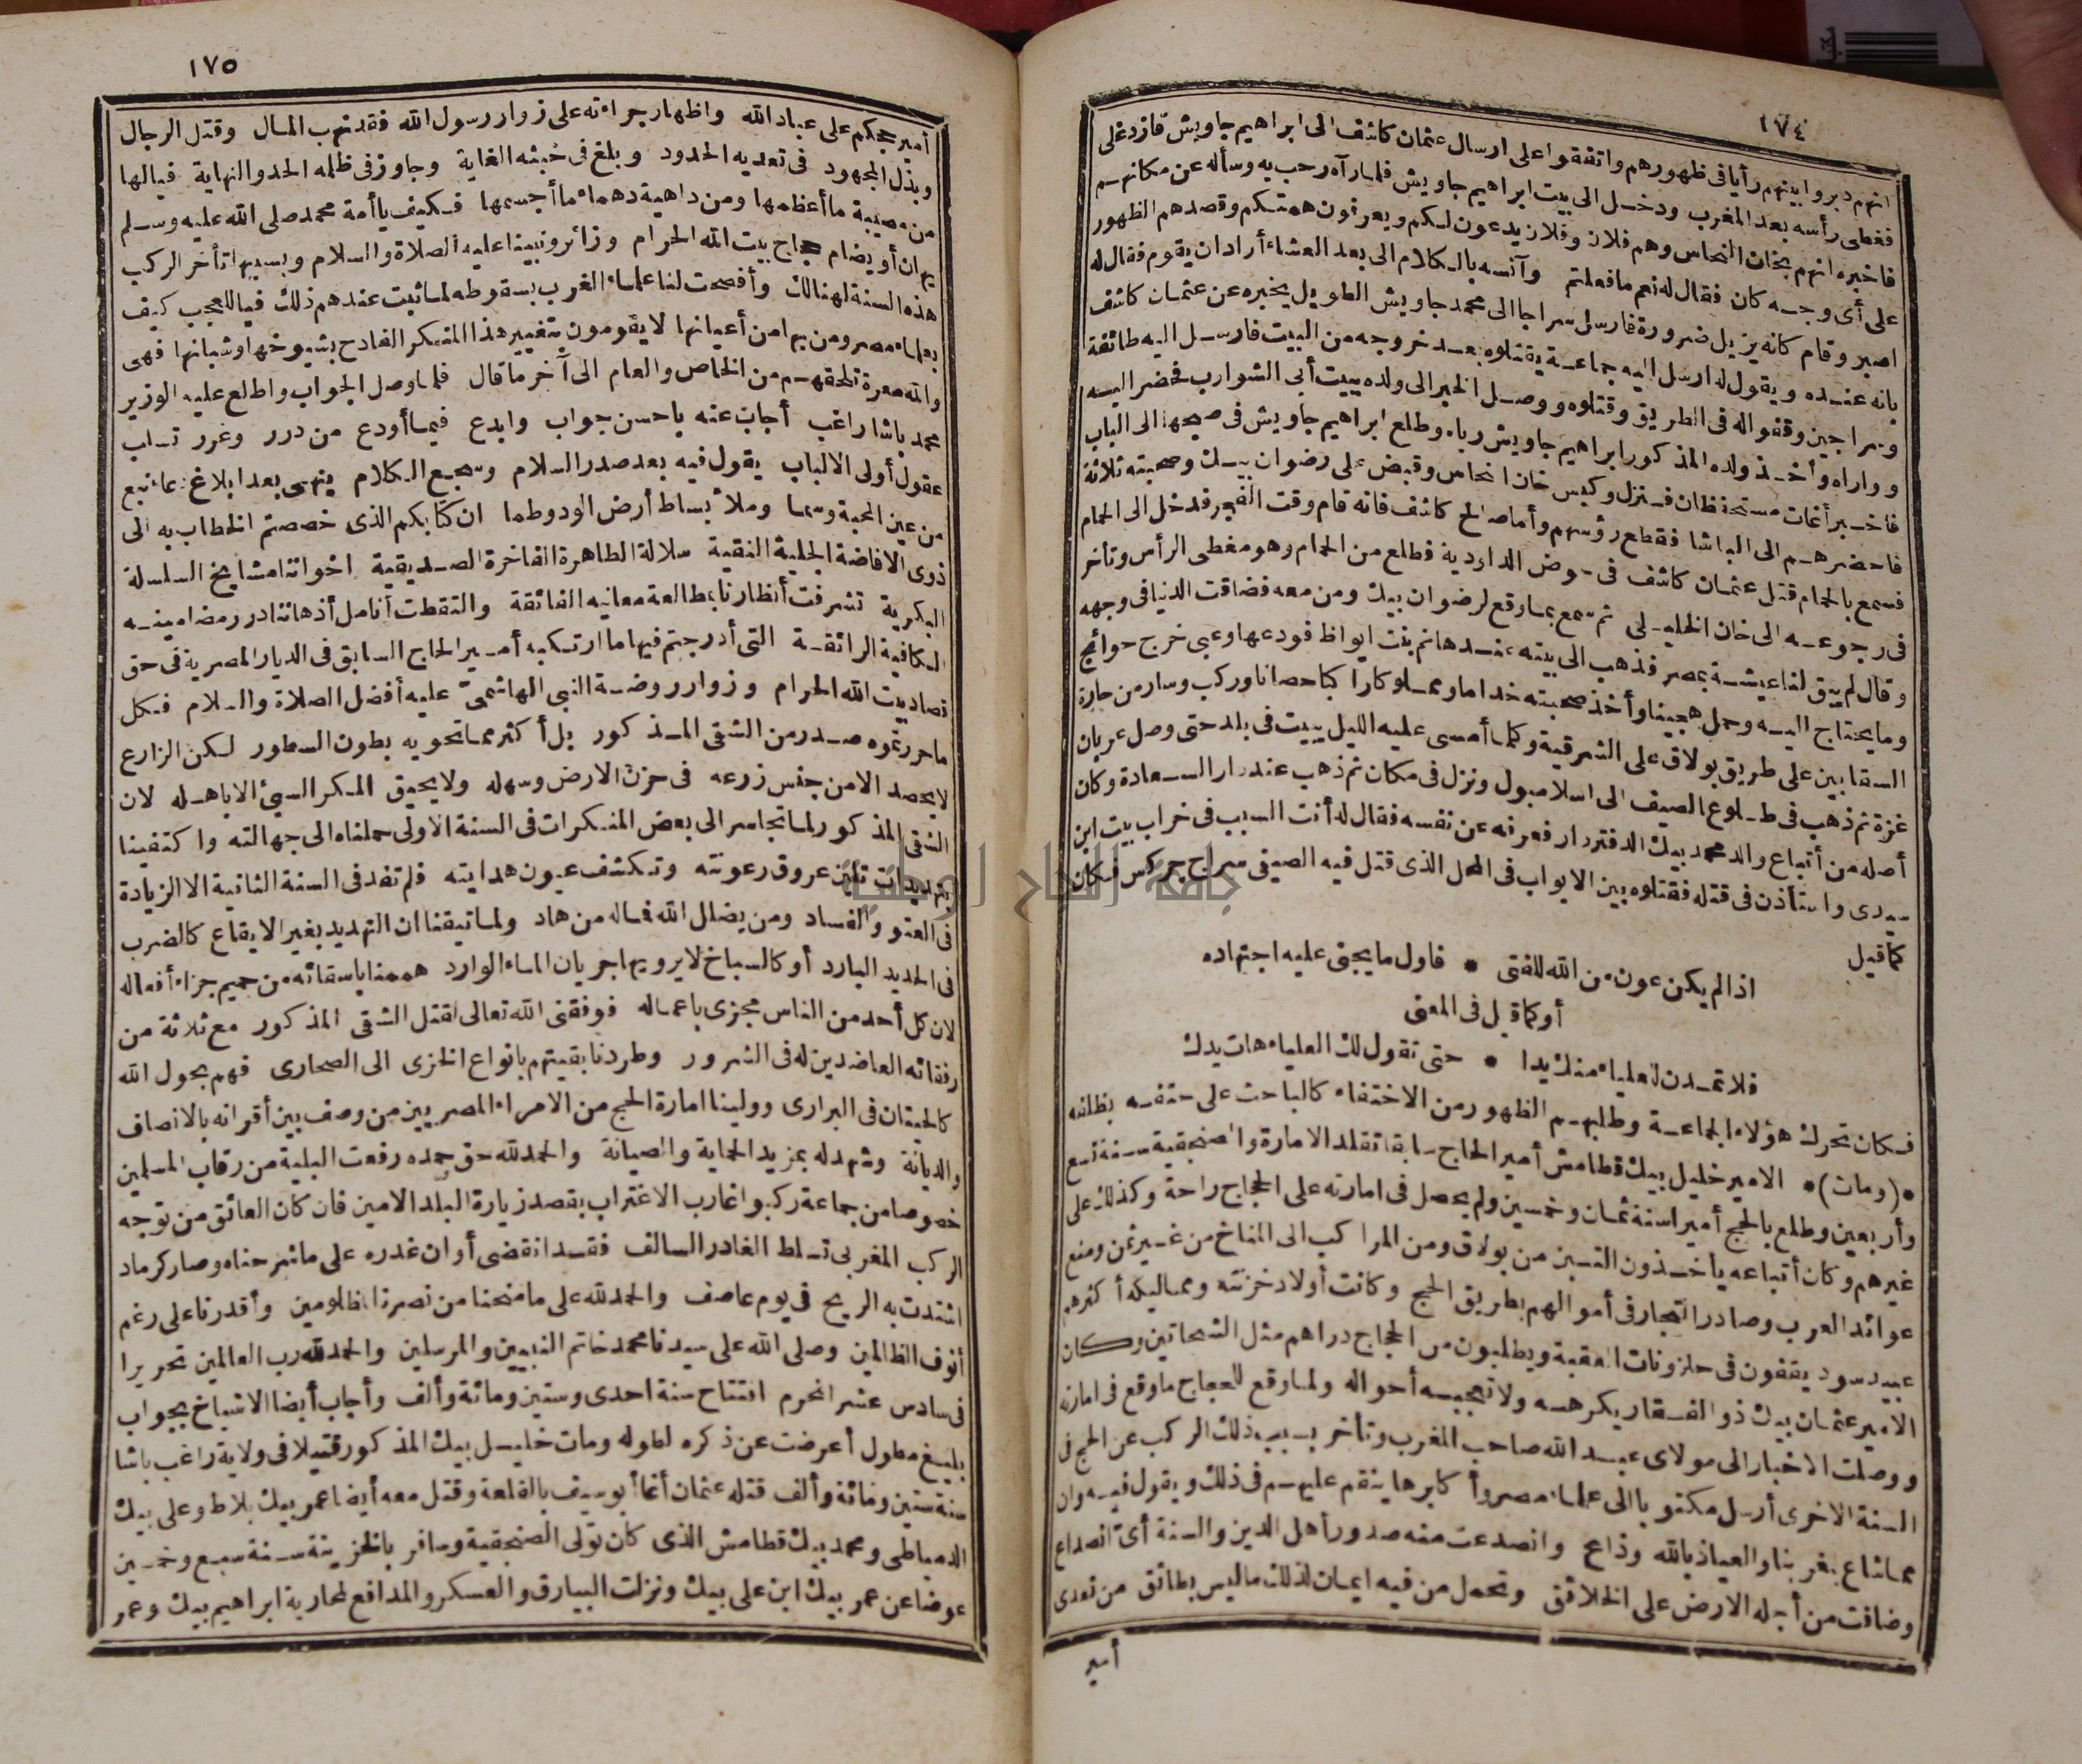 ١٧٤
انهم دبروا بينهم رأيا فى ظهورهم واتفقوا على ارسال عثمان كاشف الى ابراهيم جاويش قازدغلى
فغطى رأسه بعد المغرب ودخل الى بيت ابراهيم جاويش فلما رآه رحب به وسأله عن مكانهم
فاخبره انهم بخان النحاس وهم فلان وفلان يدعون لكم ويعرفون همتكم وقصدهم الظهور
على أى وجه كان فقال له نعم ما فعلتم وآنسه بالكلام الى بعد العشاء أراد ان يقوم فقال له
اصبر وقام كانه يزيل ضرورة فارسل سراجا الى محمد جاويش الطويل يخبره عن عثمان كاشف
بانه عنده ويقول له ارسل اليه جماعة يقتلوه بعد خروجه من البيت فارسل اليه طائفة
وسراجين وقفوا له فى الطريق وقتلوه ووصل الخبر الى ولده ببيت أبى الشوارب فحضر اليه
وواراه وأخذ ولده المذكور ابراهيم جاويش رباه وطلع ابراهيم جاويش فى صبحها الى الباب
فاخبر أغات مستحفظان فنزل وكبس خان النحاس وقبض على رضوان بيك وصحبته ثلاثة
فاحضرهم الى الباشا فقطع رؤسهم وأما صالح كاشف فانه قام وقت الفجر فدخل الى الحمام
فسمع بالحمام قتل عثمان كاشف فى حوض الداودية فطلع من الحمام وهو مغطى الرأس وتأخر
فى رجوعه الى خان الخليلى ثم سمع بما وقع لرضوان بيك ومن معه فضاقت الدنيا فى وجهه
وقال لم يبق لنا عيشة بمصر فذهب الى بيته عند هانم بنت ايواظ فودعها وعبى خرج حوائج
وما يحتاج اليه وحمل هجينا وأخذ صحبته خداما ومملوكا راكبا حصانا وركب وسار من حارة
السقايين على طريق بولاق على الشرقية وكلما أمسى عليه الليل يبيت فى بلد حتى وصل عربان
غزة ثم ذهب فى طلوع الصيف الى اسلامبول ونزل فى مكان ثم ذهب عند دار السعادة وكان
أصله من أتباع والد محمد بيك الدفتردار فعرفه عن نفسه فقال له أنت السبب فى خراب بيت ابن
سيدى واستأذن فى قتله فقتلوه بين الابواب فى المحل الذى قتل فيه الصيفى سراج جركس فكان
كما قيل
اذا لم يكن عون من الله للفتى * فاول ما يجنى عليه اجتهاده
أو كما قيل فى المعنى
فلا تمدن للعلياء منك يدا * حتى تقول لك العلياء هات يدك
فكان تحرك هؤلاء الجماعة وطلبهم الظهور من الاختفاء كالباحث على حتفه بظلفه
*(ومات)* الامير خليل بيك قطامش أمير الحاج سابقا تقلد الامارة والصنجقية سنة تسع
وأربعين وطلع بالحج أميرا سنة ثمان وخمسين ولم يحصل فى امارته على الحجاج راحة وكذلك على
غيرهم وكان أتباعه يأخذون التبن من بولاق ومن المراكب الى المناخ من غير ثمن ومنع
عوائد العرب وصادر التجار فى أموالهم بطريق الحج وكانت أولاد خزنته ومماليكه أكثرهم
عبيد سود يقفون فى حلزونات العقبة ويطلبون من الحجاج دراهم مثل الشحاتين وكان
الامير عثمان بيك ذو الفقار يكرهه ولا تعجبه أحواله ولما وقع للحجاج ما وقع فى امارته
ووصلت الاخبار الى مولاى عبد الله صاحب المغرب وتأخر بسبب ذلك الركب عن الحج فى
السنة الاخرى أرسل مكتوبا الى علماء مصر وأكابرها ينقم عليهم فى ذلك ويقول فيه وان
مما شاع بغربنا والعياذ بالله وذاع وانصدعت منه صدور أهل الدين والسنة أى انصداع
وضاقت من أجله الارض على الخلائق وتحمل من فيه ايمان لذلك ما ليس بطائق من تعدى
أمير
١٧٥
أمير حجكم على عباد الله واظهار جراءته على زوار رسول الله فقد نهب المال وقتل الرجال
وبذل المجهود فى تعديه الحدود وبلغ فى خبثه الغاية وجاوز فى ظلمه الحد والنهاية فيالها
من مصيبة ما أعظمها ومن داهية دهماء ما أجسمها فكيف يا أمة محمد صلى الله عليه وسلم
يهان أو يضام حجاج بيت الله الحرام وزائرو نبينا عليه الصلاة والسلام وبسببها تأخر الركب
هذه السنة لهنالك وأفصحت لنا علماء الغرب بسقوطه لما ثبت عندهم ذلك فيا للعجب كيف
بعلماء مصر ومن بها من أعيانها لا يقومون بتغيير هذا المنكر الفادح بشيوخها وشبانها فهى
والله معرة تلحقهم من الخاص والعام الى آخر ما قال فلما وصل الجواب واطلع عليه الوزير
محمد باشا راغب أجاب عنه باحسن جواب وابدع فيما أودع من درر وغرر تسلب
عقول أولى الالباب يقول فيه بعد صدر السلام وسجع الكلام ينهى بعد ابلاغ دعاء نبع
من عين المحبة وسما وملأ بساط أرض الود وطما ان كتابكم الذى خصصتم الخطاب به الى
ذوى الافاضة الجلية النقية سلالة الطاهرة الفاخرة الصديقية اخواننا مشايخ السلسلة
البكرية تشرفت أنظارنا بمطالعة معانيه الفائقة والتقطت أنامل أذهاننا درر مضامينه
الكافية الرائقة التى أدرجتم فيها ما ارتكبه أمير الحاج السابق فى الديار المصرية فى حق
قصاد بيت الله الحرام وزوار روضة النبى الهاشمىّ عليه أفضل الصلاة والسلام فكل
ما حررتموه صدر من الشقى المذكور بل أكثر مما تحويه بطون السطور لكن الزارع
لا يحصد الا من جنس زرعه فى حزن الارض وسهله ولا يحيق المكر السيئ الا باهله لان
الشقى المذكور لما تجاسر الى بعض المنكرات فى السنة الاولى حملناه الى جهالته واكتفينا
بتهديدات تلين عروق رعونته وتكشف عيون هدايته فلم تفد فى السنة الثانية الا الزيادة
فى العتو والفساد ومن يضلل الله فما له من هاد ولما تيقنا ان التهديد بغير الايقاع كالضرب
فى الحديد البارد أو كالسباخ لا يرويها جريان الماء الوارد هممنا باسقائه من حميم جزاء أفعاله
لان كل أحد من الناس مجزى باعماله فوفقنى الله تعالى لقتل الشقى المذكور مع ثلاثة من
رفقائه العاضدين له فى الشرور وطردنا بقيتهم بانواع الخزى الى الصحارى فهم بحول الله
كالحيتان فى البرارى وولينا امارة الحج من الامراء المصريين من وصف بين أقرانه بالانصاف
والديانة وشهد له بمزيد الحماية والصيانة والحمد لله حق حمده رفعت البلية من رقاب المسلمين
خصوصا من جماعة ركبوا غارب الاغتراب بقصد زيارة البلد الامين فان كان العائق من توجه
الركب المغربى تسلط الغادر السالف فقد انقضى أوان غدره على ما شرحناه وصار كرماد
اشتدت به الريح فى يوم عاصف والحمد لله على ما منحنا من نصرة المظلومين وأقدرنا على رغم
أنوف الظالمين وصلى الله على سيدنا محمد خاتم النبيين والمرسلين والحمد لله رب العالمين تحريرا
فى سادس عشر المحرم افتتاح سنة احدى وستين ومائة وألف وأجاب أيضا الاشياخ بجواب
بليغ مطول أعرضت عن ذكره لطوله ومات خليل بيك المذكور قتيلا فى ولاية راغب باشا
سنة ستين ومائة وألف قتله عثمان أغا أبو سيف بالقلعة وقتل معه أيضا عمر بيك بلاط وعلى بيك
الدمياطى ومحمد بيك قطامش الذى كان تولى الصنجقية وسافر بالخزينة سنة سبع وخمسين
عوضا عن عمر بيك ابن على بيك ونزلت البيارق والعسكر والمدافع لمحاربة ابراهيم بيك وعمر
جامعة النجاح الوطنية